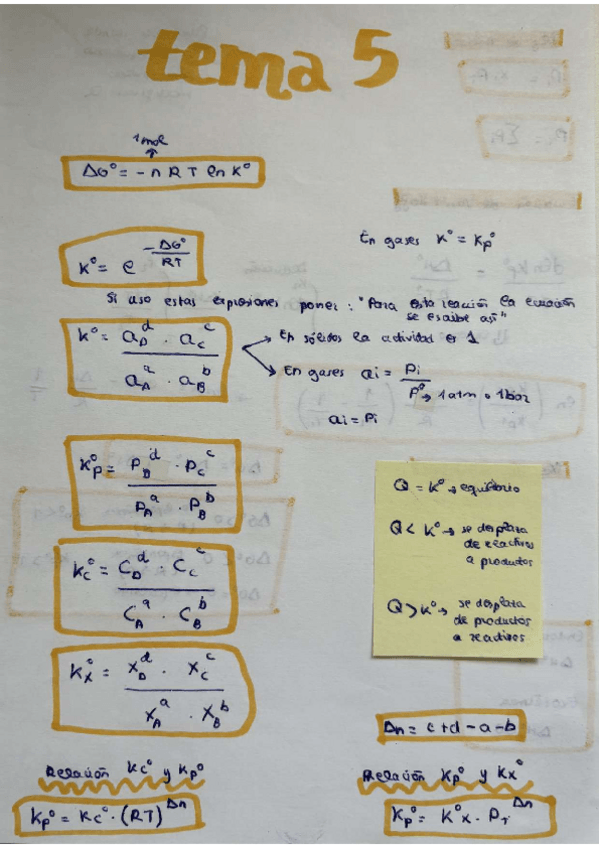 tema 5
1 mol
ΔG° = -n R T ln K°
K° = e^(-ΔG°/RT)
En gases K° = Kp°
Si uso estas expresiones poner: "Para esta reacción la ecuación
se escribe así"
K° = a_D^d · a_C^c / a_A^a · a_B^b
En sólidos la actividad es 1
En gases ai = Pi / P° → 1 atm o 1 bar
ai = Pi
Kp° = P_D^d · P_C^c / P_A^a · P_B^b
Q = K° → equilibrio
Q < K° → se desplaza
de reactivos
a productos
Q > K° → se desplaza
de productos
a reactivos
Kc° = C_D^d · C_C^c / C_A^a · C_B^b
Kx° = X_D^d · X_C^c / X_A^a · X_B^b
Δn = c+d-a-b
Relación Kc° y Kp°
Kp° = Kc° · (RT)^Δn
Relación Kp° y Kx°
Kp° = K°x · P_T^Δn